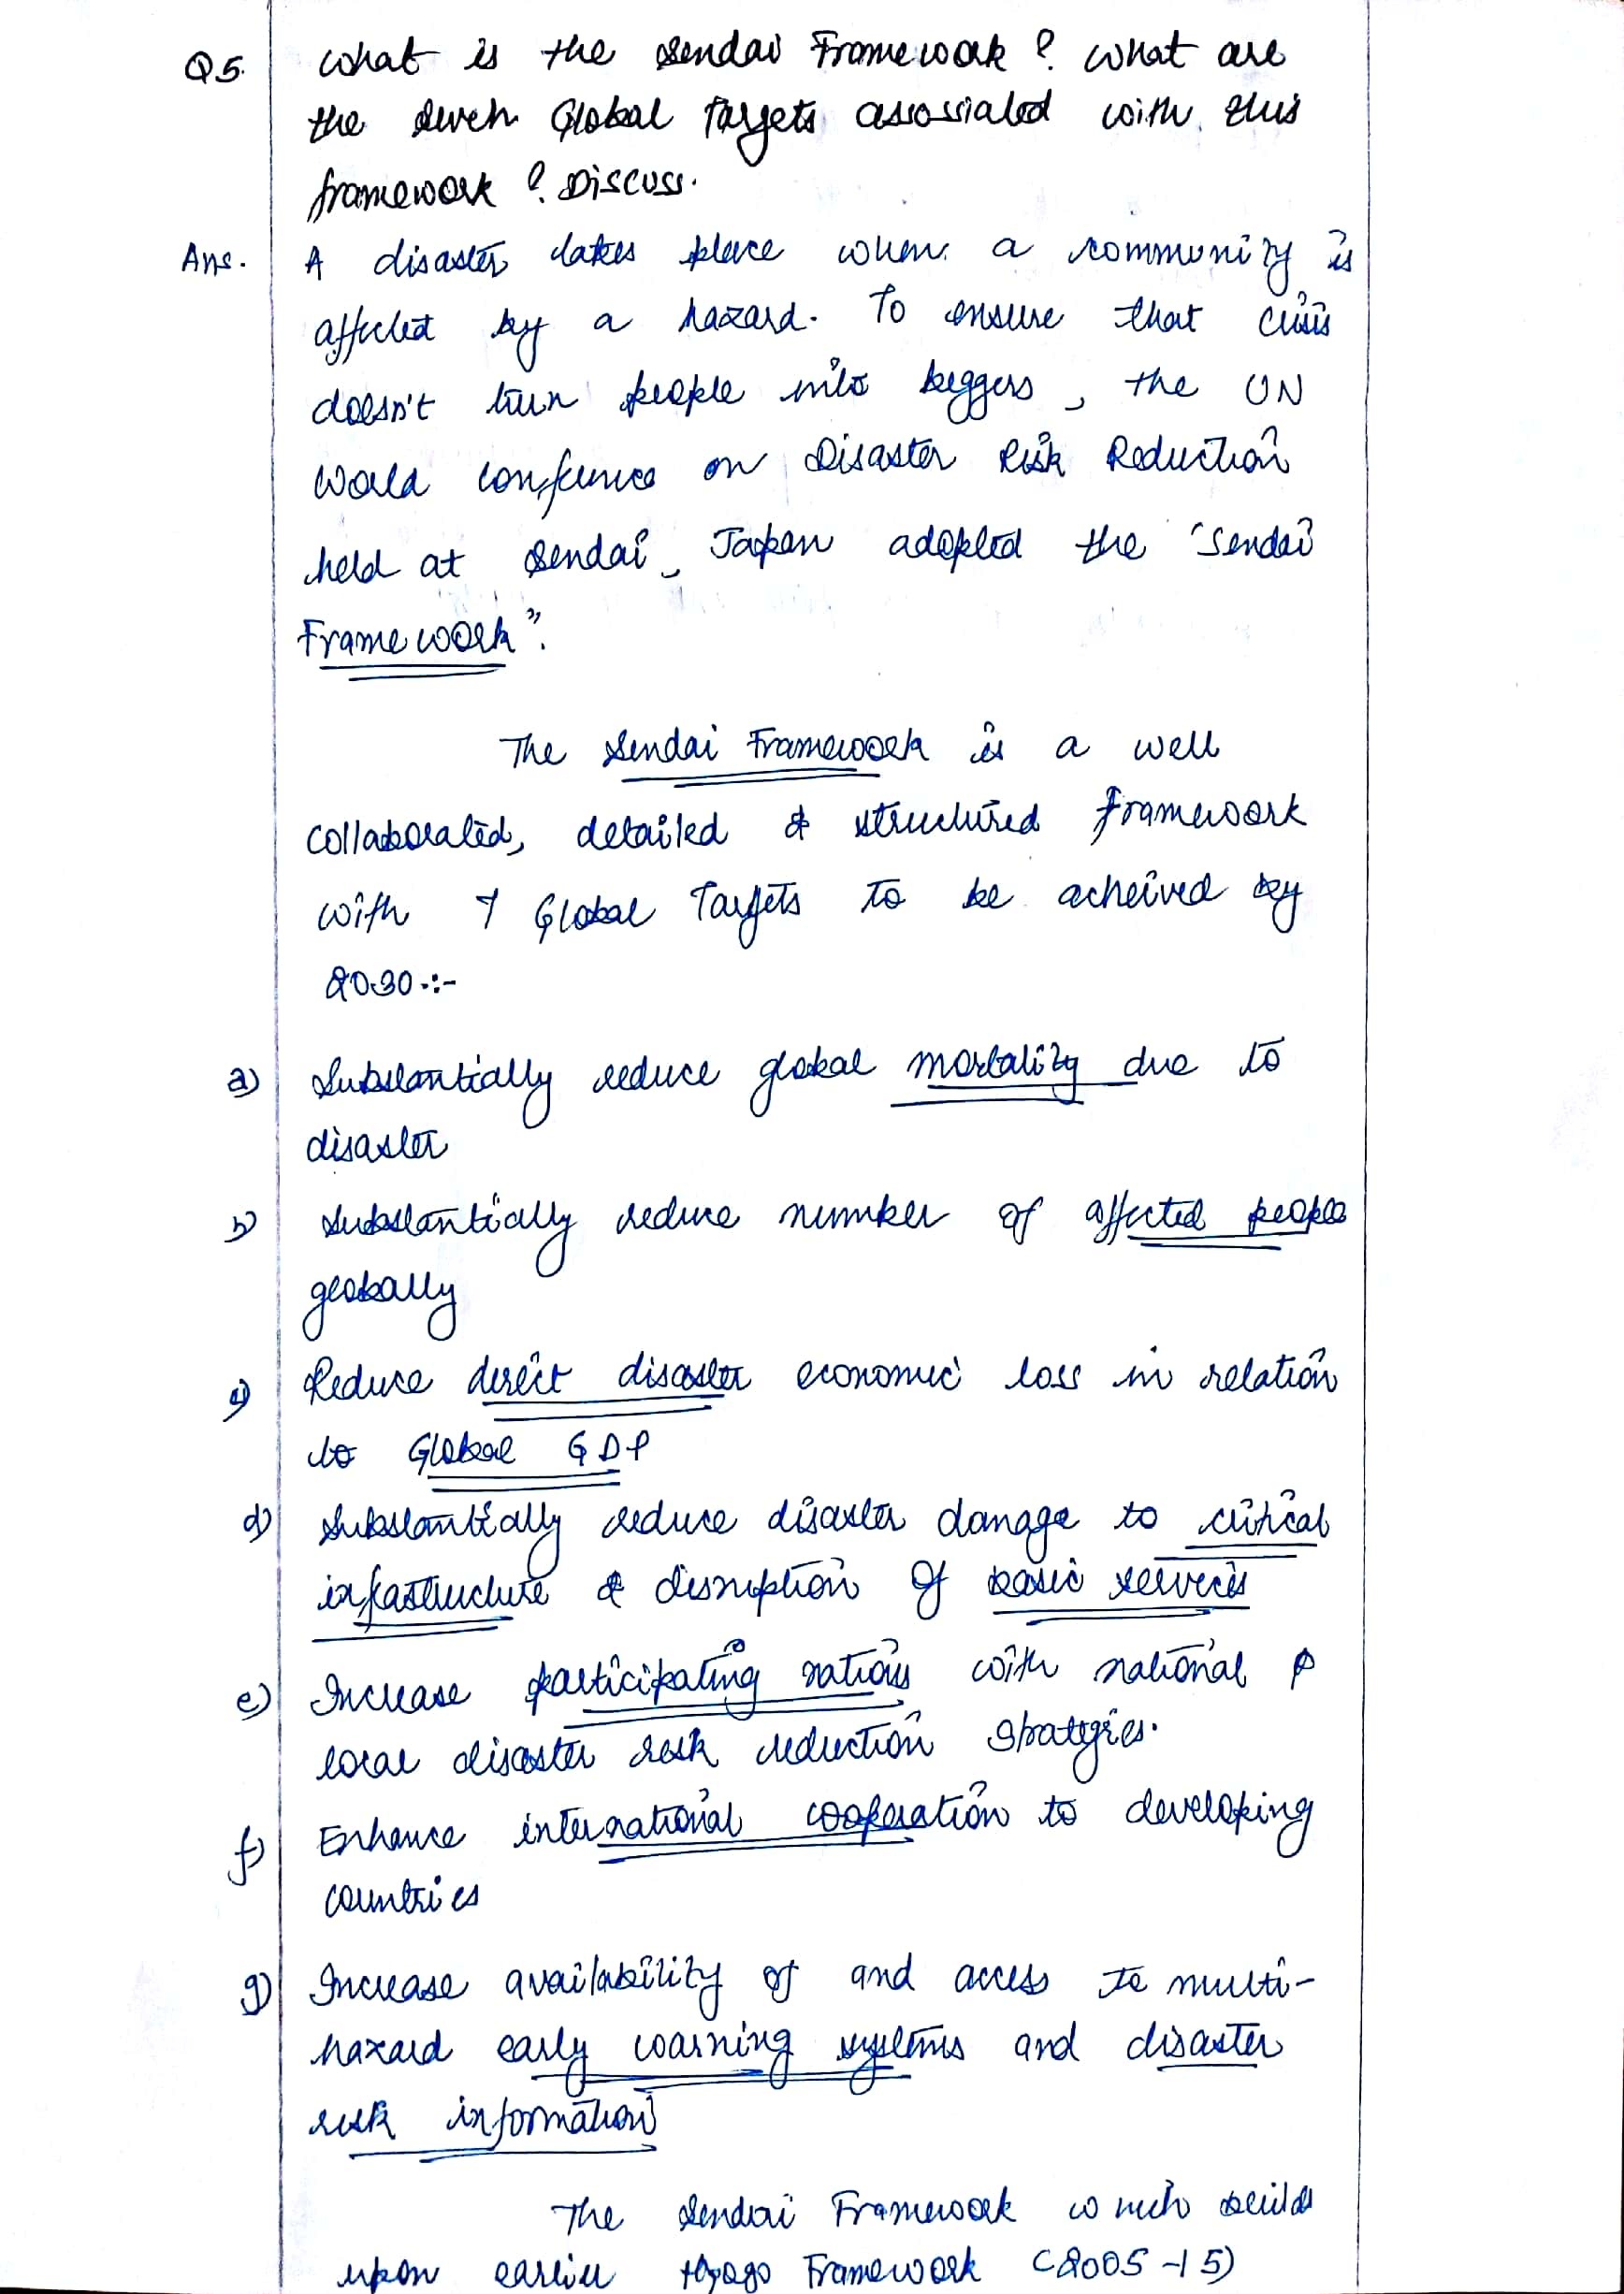 Q5. What is the Sendai Framework? What are
the seven Global Targets assossiated with this
framework? Discuss.
Ans. A disaster takes place when a community is
affected by a hazard. To ensure that crisis
doesn't turn people into beggers, the UN
World conference on Disaster Risk Reduction
held at Sendai, Japan adopted the "Sendai
Framework".
The Sendai Framework is a well
collaborated, detailed & structured framework
with 7 Global Targets to be acheived by
2030:-
a) Substantially reduce global mortality due to
disaster
b) Substantially reduce number of affected people
globally
c) Reduce direct disaster economic loss in relation
to Global GDP
d) Substantially reduce disaster damage to critical
infastructure & disruption of basic services
e) Increase participating nations with national &
local disaster risk reduction strategies.
f) Enhance international cooperation to developing
countries
g) Increase availability of and access to multi-
hazard early warning systems and disaster
risk information
The Sendai Framework which builds
upon earlier Hyogo Framework (2005-15)